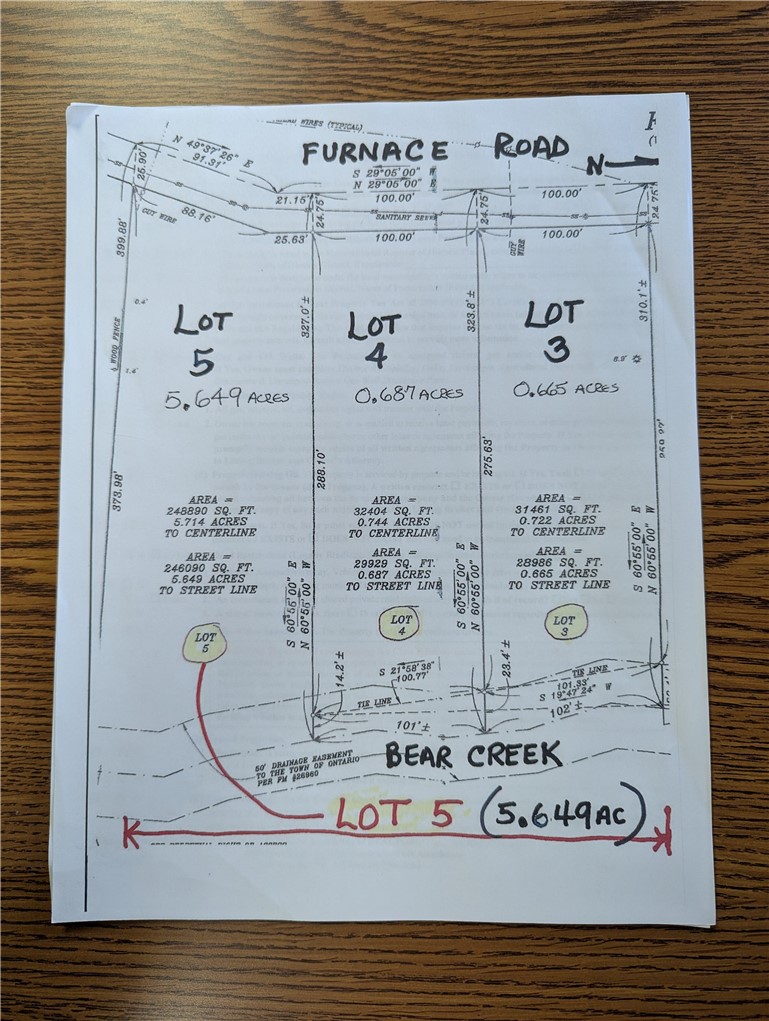 WIRES (TYPICAL)
FURNACE ROAD
N
N 49°37'26" E
91.31'
25.90'
S 29°05'00" W
N 29°05'00" E
21.15'
100.00'
100.00'
24.75'
24.75'
24.75'
SANITARY SEWER
GUY WIRE
88.16'
25.63'
100.00'
100.00'
GUY WIRE
399.88'
327.0' ±
323.8' ±
310.1' ±
LOT 5
5.649 ACRES
LOT 4
0.687 ACRES
LOT 3
0.665 ACRES
0.4'
WOOD FENCE
1.4'
373.98'
288.10'
275.63'
AREA =
248890 SQ. FT.
5.714 ACRES
TO CENTERLINE
AREA =
246090 SQ. FT.
5.649 ACRES
TO STREET LINE
AREA =
32404 SQ. FT.
0.744 ACRES
TO CENTERLINE
AREA =
29929 SQ. FT.
0.687 ACRES
TO STREET LINE
AREA =
31461 SQ. FT.
0.722 ACRES
TO CENTERLINE
AREA =
28986 SQ. FT.
0.665 ACRES
TO STREET LINE
S 60°55'00" E
N 60°55'00" W
S 60°55'00" E
N 60°55'00" W
S 60°55'00" E
N 60°55'00" W
LOT
5
LOT
4
LOT
3
14.2' ±
S 21°58'38"
100.77'
TIE LINE
23.4' ±
TIE LINE
101.33'
S 19°47'24" W
102' ±
101' ±
50' DRAINAGE EASEMENT
TO THE TOWN OF ONTARIO
PER PM #26960
BEAR CREEK
LOT 5 (5.649 AC)